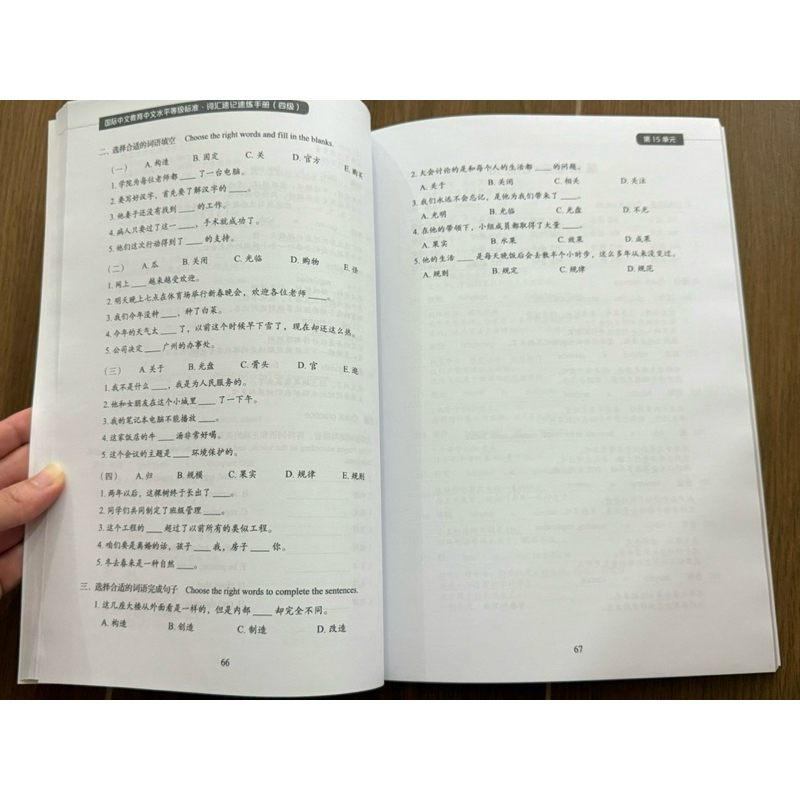 国际中文教育中文水平等级标准·词汇速记速练手册（四级）
二、选择合适的词语填空 Choose the right words and fill in the blanks.
（一） A. 构造 B. 固定 C. 关 D. 官方 E. 购买
1. 学院为每位老师都____了一台电脑。
2. 要写好汉字，首先要了解汉字的____。
3. 他妻子还没有找到____的工作。
4. 病人只要过了这一____，手术就成功了。
5. 他们这次行动得到了____的支持。
（二） A. 瓜 B. 关闭 C. 光临 D. 购物 E. 怪
1. 网上____越来越受欢迎。
2. 明天晚上七点在体育场举行新春晚会，欢迎各位老师____。
3. 我们今年没种____，种了白菜。
4. 今年的天气太____了，以前这个时候早下雪了，现在却还这么热。
5. 公司决定____广州的办事处。
（三） A. 关于 B. 光盘 C. 骨头 D. 官 E. 逛
1. 我不是什么____，我是为人民服务的。
2. 他和女朋友在这个小城里____了一下午。
3. 我的笔记本电脑不能播放____。
4. 这家饭店的牛____汤非常好喝。
5. 这个会议的主题是____环境保护的。
（四） A. 归 B. 规模 C. 果实 D. 规律 E. 规则
1. 两年以后，这棵树终于长出了____。
2. 同学们共同制定了班级管理____。
3. 这个工程的____超过了以前所有的类似工程。
4. 咱们要是离婚的话，孩子____我，房子____你。
5. 冬去春来是一种自然____。
三、选择合适的词语完成句子 Choose the right words to complete the sentences.
1. 这几座大楼从外面看是一样的，但是内部____却完全不同。
A. 构造 B. 创造 C. 制造 D. 改造
66
第 15 单元
2. 大会讨论的是和每个人的生活都____的问题。
A. 关于 B. 关闭 C. 相关 D. 关注
3. 我们永远不会忘记，是他为我们带来了____。
A. 光明 B. 光临 C. 光盘 D. 不光
4. 在他的带领下，小组成员都取得了大量____。
A. 果实 B. 水果 C. 效果 D. 成果
5. 他的生活____是每天晚饭后会去散半个小时步，这么多年从来没变过。
A. 规则 B. 规定 C. 规律 D. 规范
67